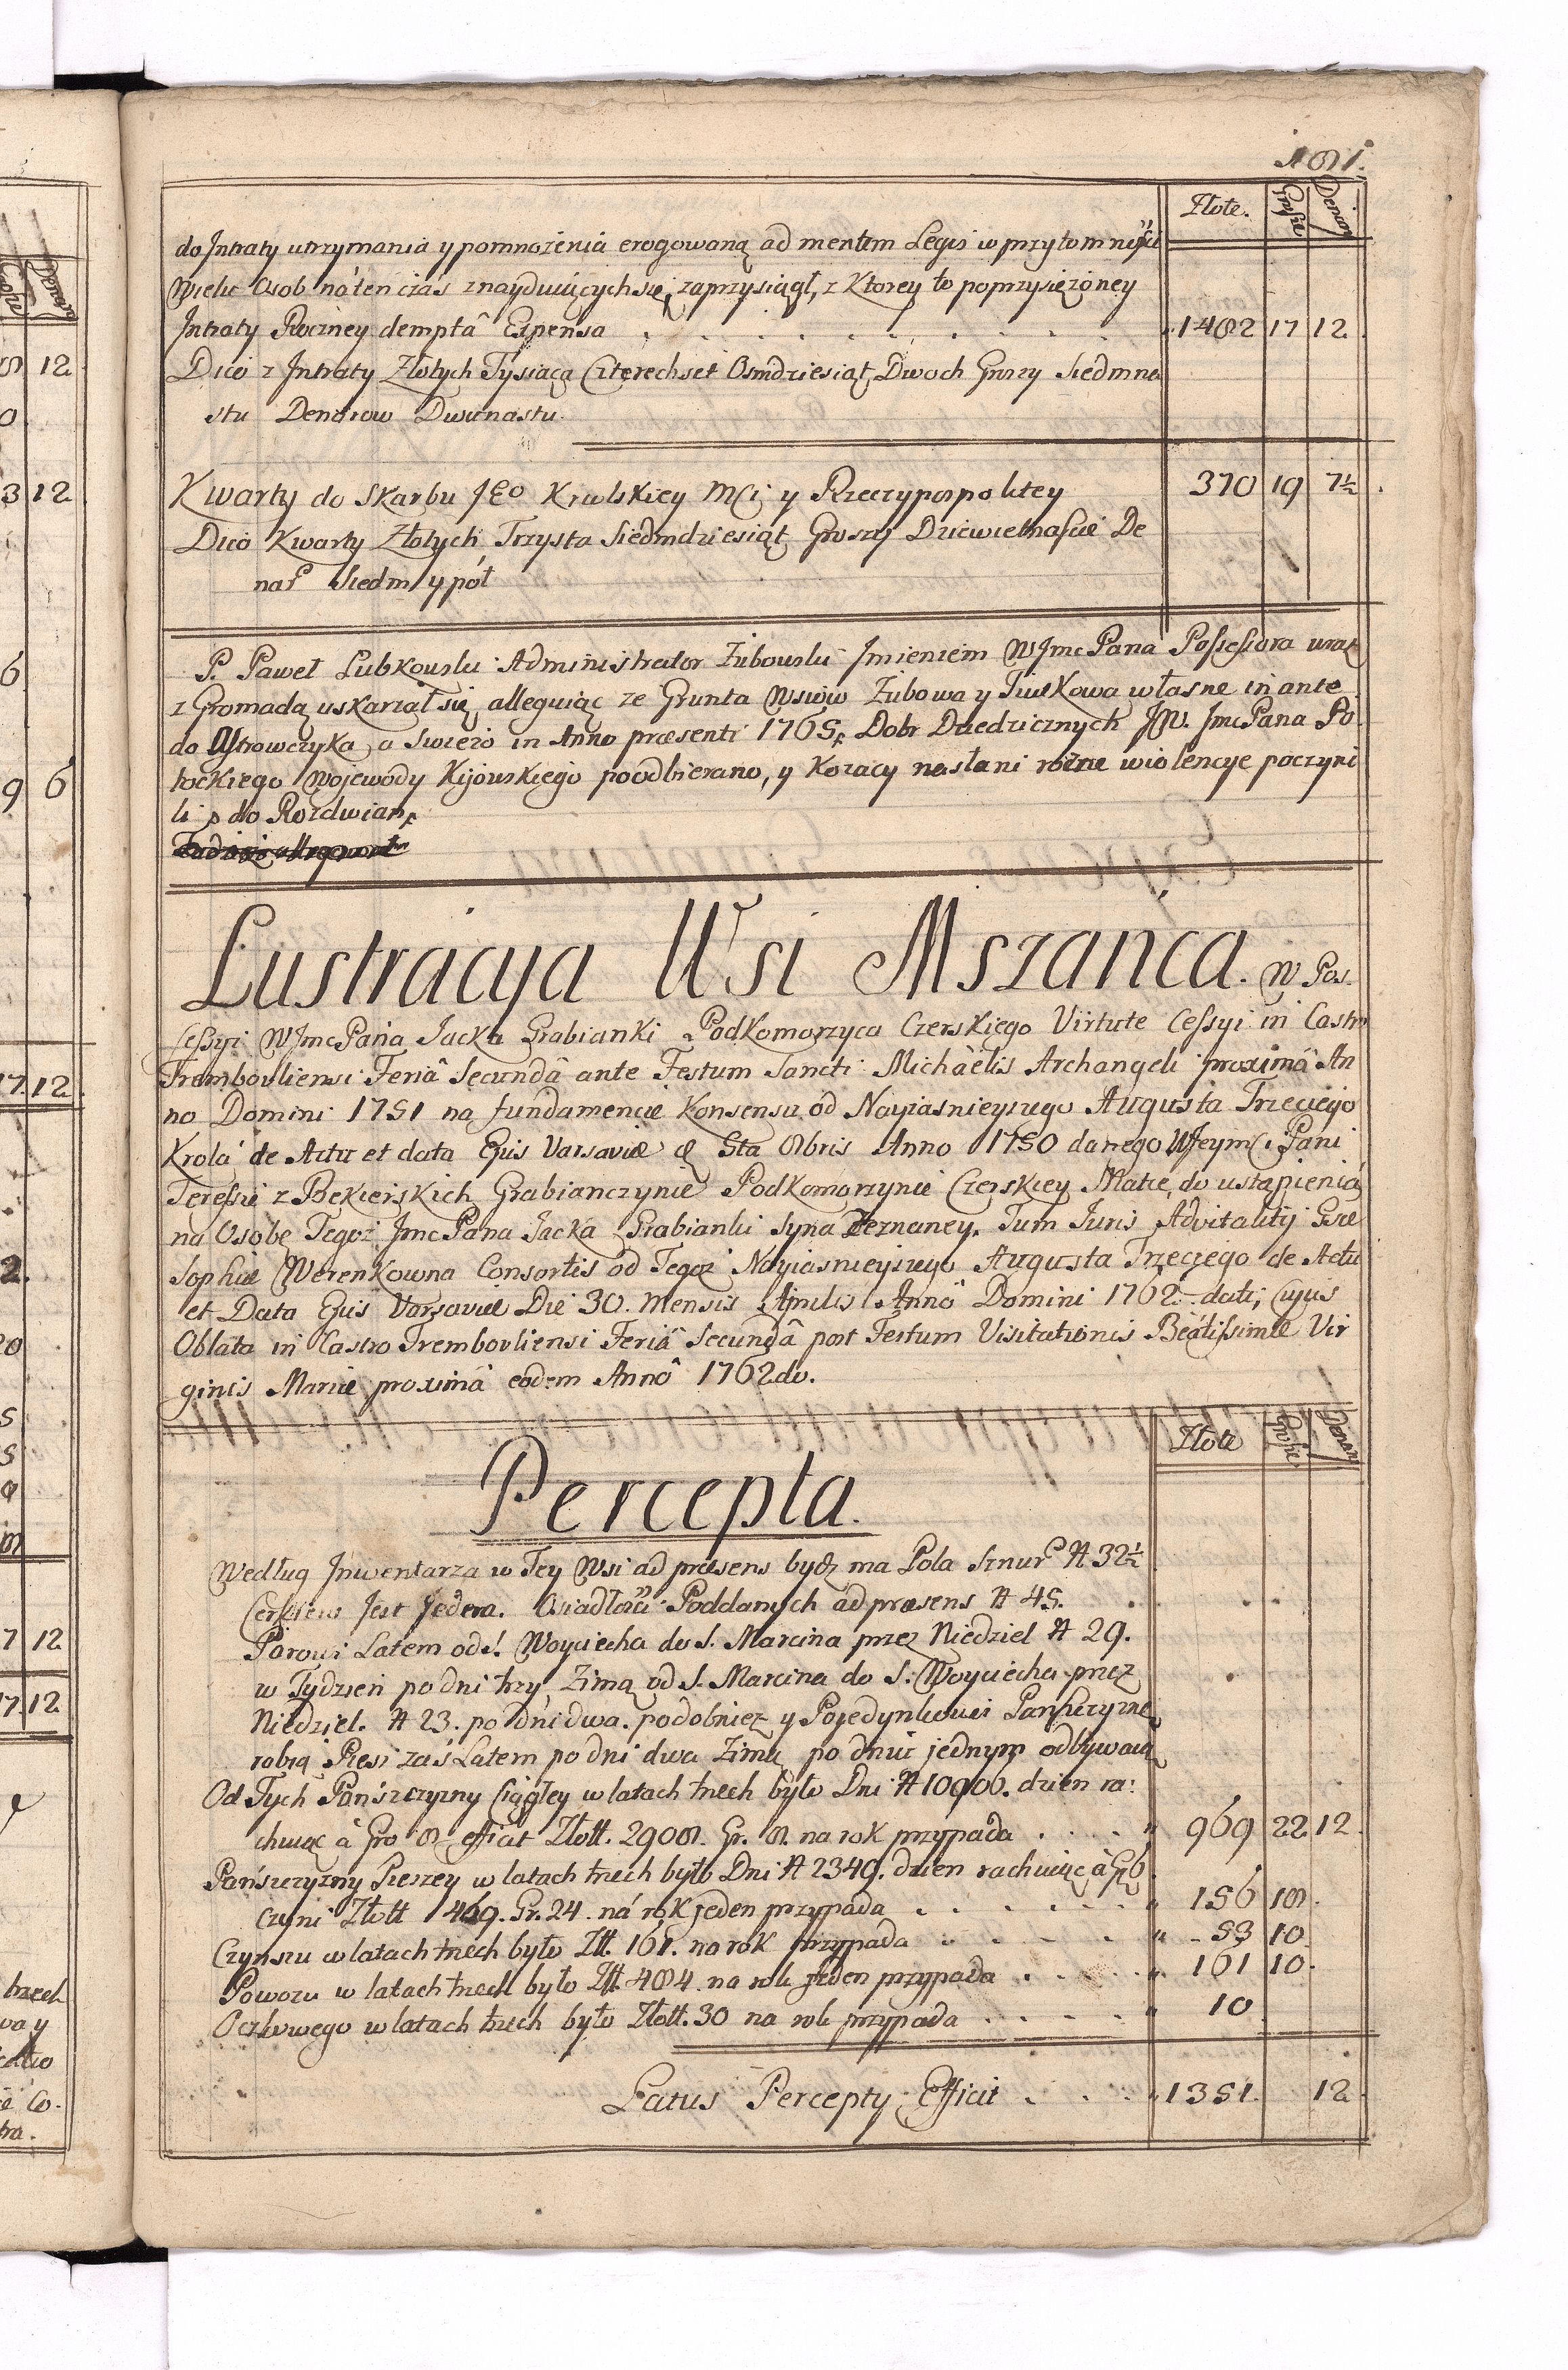 181.
Złote. Grosze Denar
do Intraty utrzymania y pomnożenia erogowaną ad mentem Legis w przytomności
Wielu Osob náten czás znayduiących się, zaprzysiągł, z Ktorey to poprzysiężoney
Intraty Roczney demptâ Expensa . . . . . . . . . 1482 17 12.
Dico z Intraty Złotych Tysiąca Czterechset Osmdziesiąt Dwoch Groszy Siedmna
stu Denarow Dwunastu.
Kwarty do Skarbu JEo Krolskiey Mci y Rzeczypospolitey 370 19 7½.
Dico Kwarty Złotych Trzysta Siedmdziesiąt Groszy Dziewietnaście De
nar Siedm y pół
P. Paweł Lubkowski Administrator Zubowski Imieniem WJmc Pana Possessora wraz
z Gromadą uskarzał się, alleguiąc ze Grunta Wsiów Zubowa y Iwkowa własne in ante
do Ostrowczyka, a swiezo in Anno præsenti 1765, Dobr Dziedzicznych JW. Jmc Pana Po
tockiego Wojewody Kijowskiego poodbierano, y Kozacy nasłani rożne wiolencye poczyni
li, do Rozdwian,
Lustracya Wsi Mszańca. w Pos.
sessyi WJmc Pana Jacka Grabianki Podkomorzyca Czerskiego Virtute Cessyi in Castro
Trembovliensi Feriâ Secundâ ante Festum Sancti Michäelis Archangeli proximâ An
no Domini 1751 na fundamencie Konsensu od Nayiasnieyszego Augusta Trzeciego
Krola de Actu et data Ejus Varsaviæ 5ta 8bris Anno 1750 danego WJeymCi Pani
Teressie z Bekierskich Grabianczynie Podkomorzynie Czerskiey Matce, do ustąpienia
na Osobę Tegoż Jmc Pana Jacka Grabianki Syna Zeznaney. Tum Juris Advitalitij Gse
Sophiæ Werenkowna Consortis od Tegoż Nayiasnieyszego Augusta Trzeciego de Actu
et Data Ejus Varsaviæ Die 30. Mensis Aprilis Annô Domini 1762. dati, Cujus
Oblata in Castro Trembovliensi Feriâ Secundâ post Festum Visitationis Beatissimæ Vir
ginis Mariæ proximâ eodem Annô 1762do.
Złote Grosze Denar
Percepta.
Według Inwentarza w Tey Wsi ad præsens bydź ma Pola Sznur N 32½
Jest Jedera. Osiadłości Poddanych ad præsens N 45.
Parowi Latem od S. Woyciecha do S. Marcina przez Niedziel N 29.
w Tydzień po dni trzy, Zimą od S. Marcina do S. Woyciecha przez
Niedziel. N 23. po dni dwa. podobniez y Pojedynkowi Panszczyznę
robią Piesi zaś Latem po dni dwa Zimą po dniu jednym odbywaią
Od Tych Pańszczyzny Ciągłey w latach trzech było Dni N 10906. dzien ra:
chuiąc â Gro 8 efficit Złott. 2908. Gr. 8. na rok przypada . . . . 969 22 12.
Pańszczyzny Pieszey w latach trzech było Dni N 2349. dzien rachuiąc â G 6
czyni Złott 469. Gr. 24. ná rok jeden przypada . . . . . . 156 18.
Czynszu w latach trzech było Złt. 161. na rok przypada . . . . . 53 10.
Powozu w latach trzech było Złt. 484. na rok jeden przypada . . . . . 161 10.
Oczkowego w latach trzech było Złott. 30 na rok przypada . . . . . 10
Latus Percepty Efficit . . . . 1351. 12.